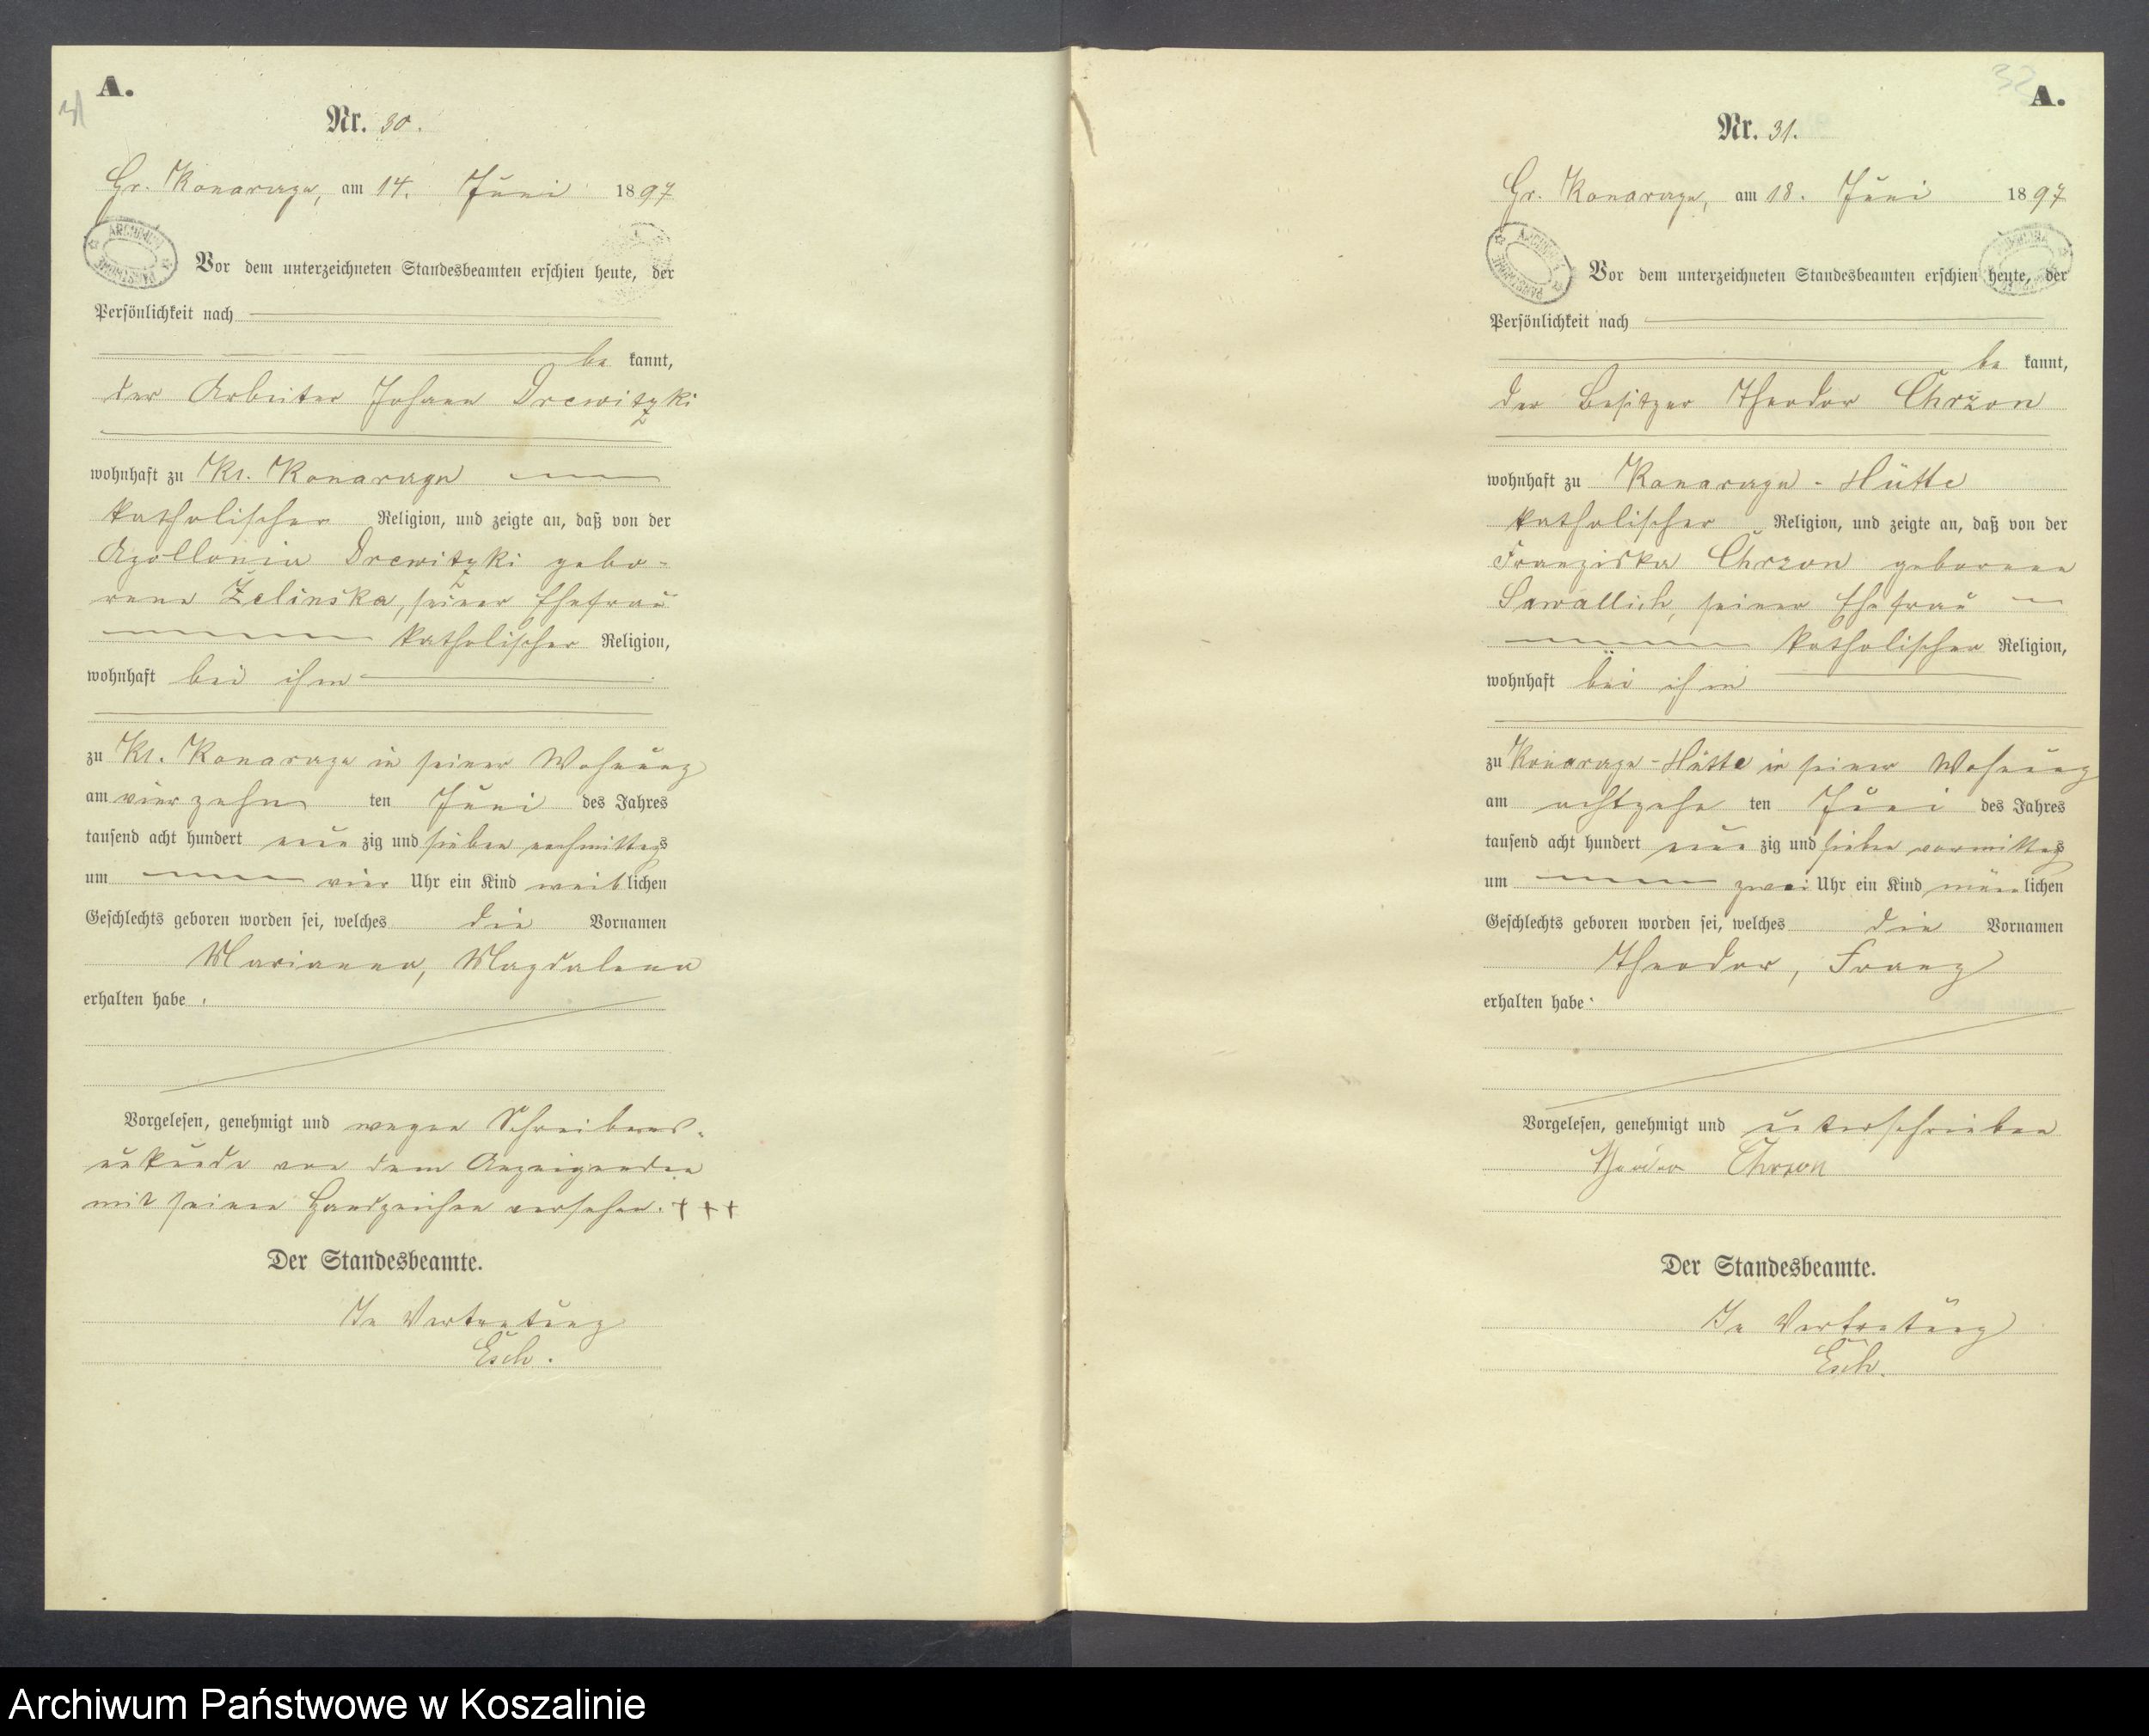 A.
31
Nr. 30.
Gr. Konarczyn, am 14. Juni 1897
Vor dem unterzeichneten Standesbeamten erschien heute, der
Persönlichkeit nach
be kannt,
der Arbeiter Johann Drewitzki
wohnhaft zu Kl. Konarczyn
katholischer Religion, und zeigte an, daß von der
Apollonia Drewitzki gebo-
rene Želinska, seiner Ehefrau
katholischer Religion,
wohnhaft bei ihm
zu Kl. Konarczyn in seiner Wohnung
am vierzehn ten Juni des Jahres
tausend acht hundert neun zig und sieben nachmittags
um vier Uhr ein Kind weib lichen
Geschlechts geboren worden sei, welches die Vornamen
Marianna, Magdalena
erhalten habe.
Vorgelesen, genehmigt und wegen Schreibens-
unkunde von dem Anzeigenden
mit seinen Handzeichen versehen. + + +
Der Standesbeamte.
In Vertretung
Esch.
32
A.
Nr. 31.
Gr. Konarczyn, am 18. Juni 1897
Vor dem unterzeichneten Standesbeamten erschien heute, der
Persönlichkeit nach
be kannt,
der Besitzer Theodor Chrzon
wohnhaft zu Konarczyn-Hütte
katholischer Religion, und zeigte an, daß von der
Franziska Chrzon geborene
Sawallich, seiner Ehefrau
katholischer Religion,
wohnhaft bei ihm
zu Konarczyn-Hütte in seiner Wohnung
am achtzehn ten Juni des Jahres
tausend acht hundert neun zig und sieben vormittags
um zwei Uhr ein Kind männ lichen
Geschlechts geboren worden sei, welches die Vornamen
Theodor, Franz
erhalten habe.
Vorgelesen, genehmigt und unterschrieben
Theodor Chrzon
Der Standesbeamte.
In Vertretung
Esch.
Archiwum Państwowe w Koszalinie